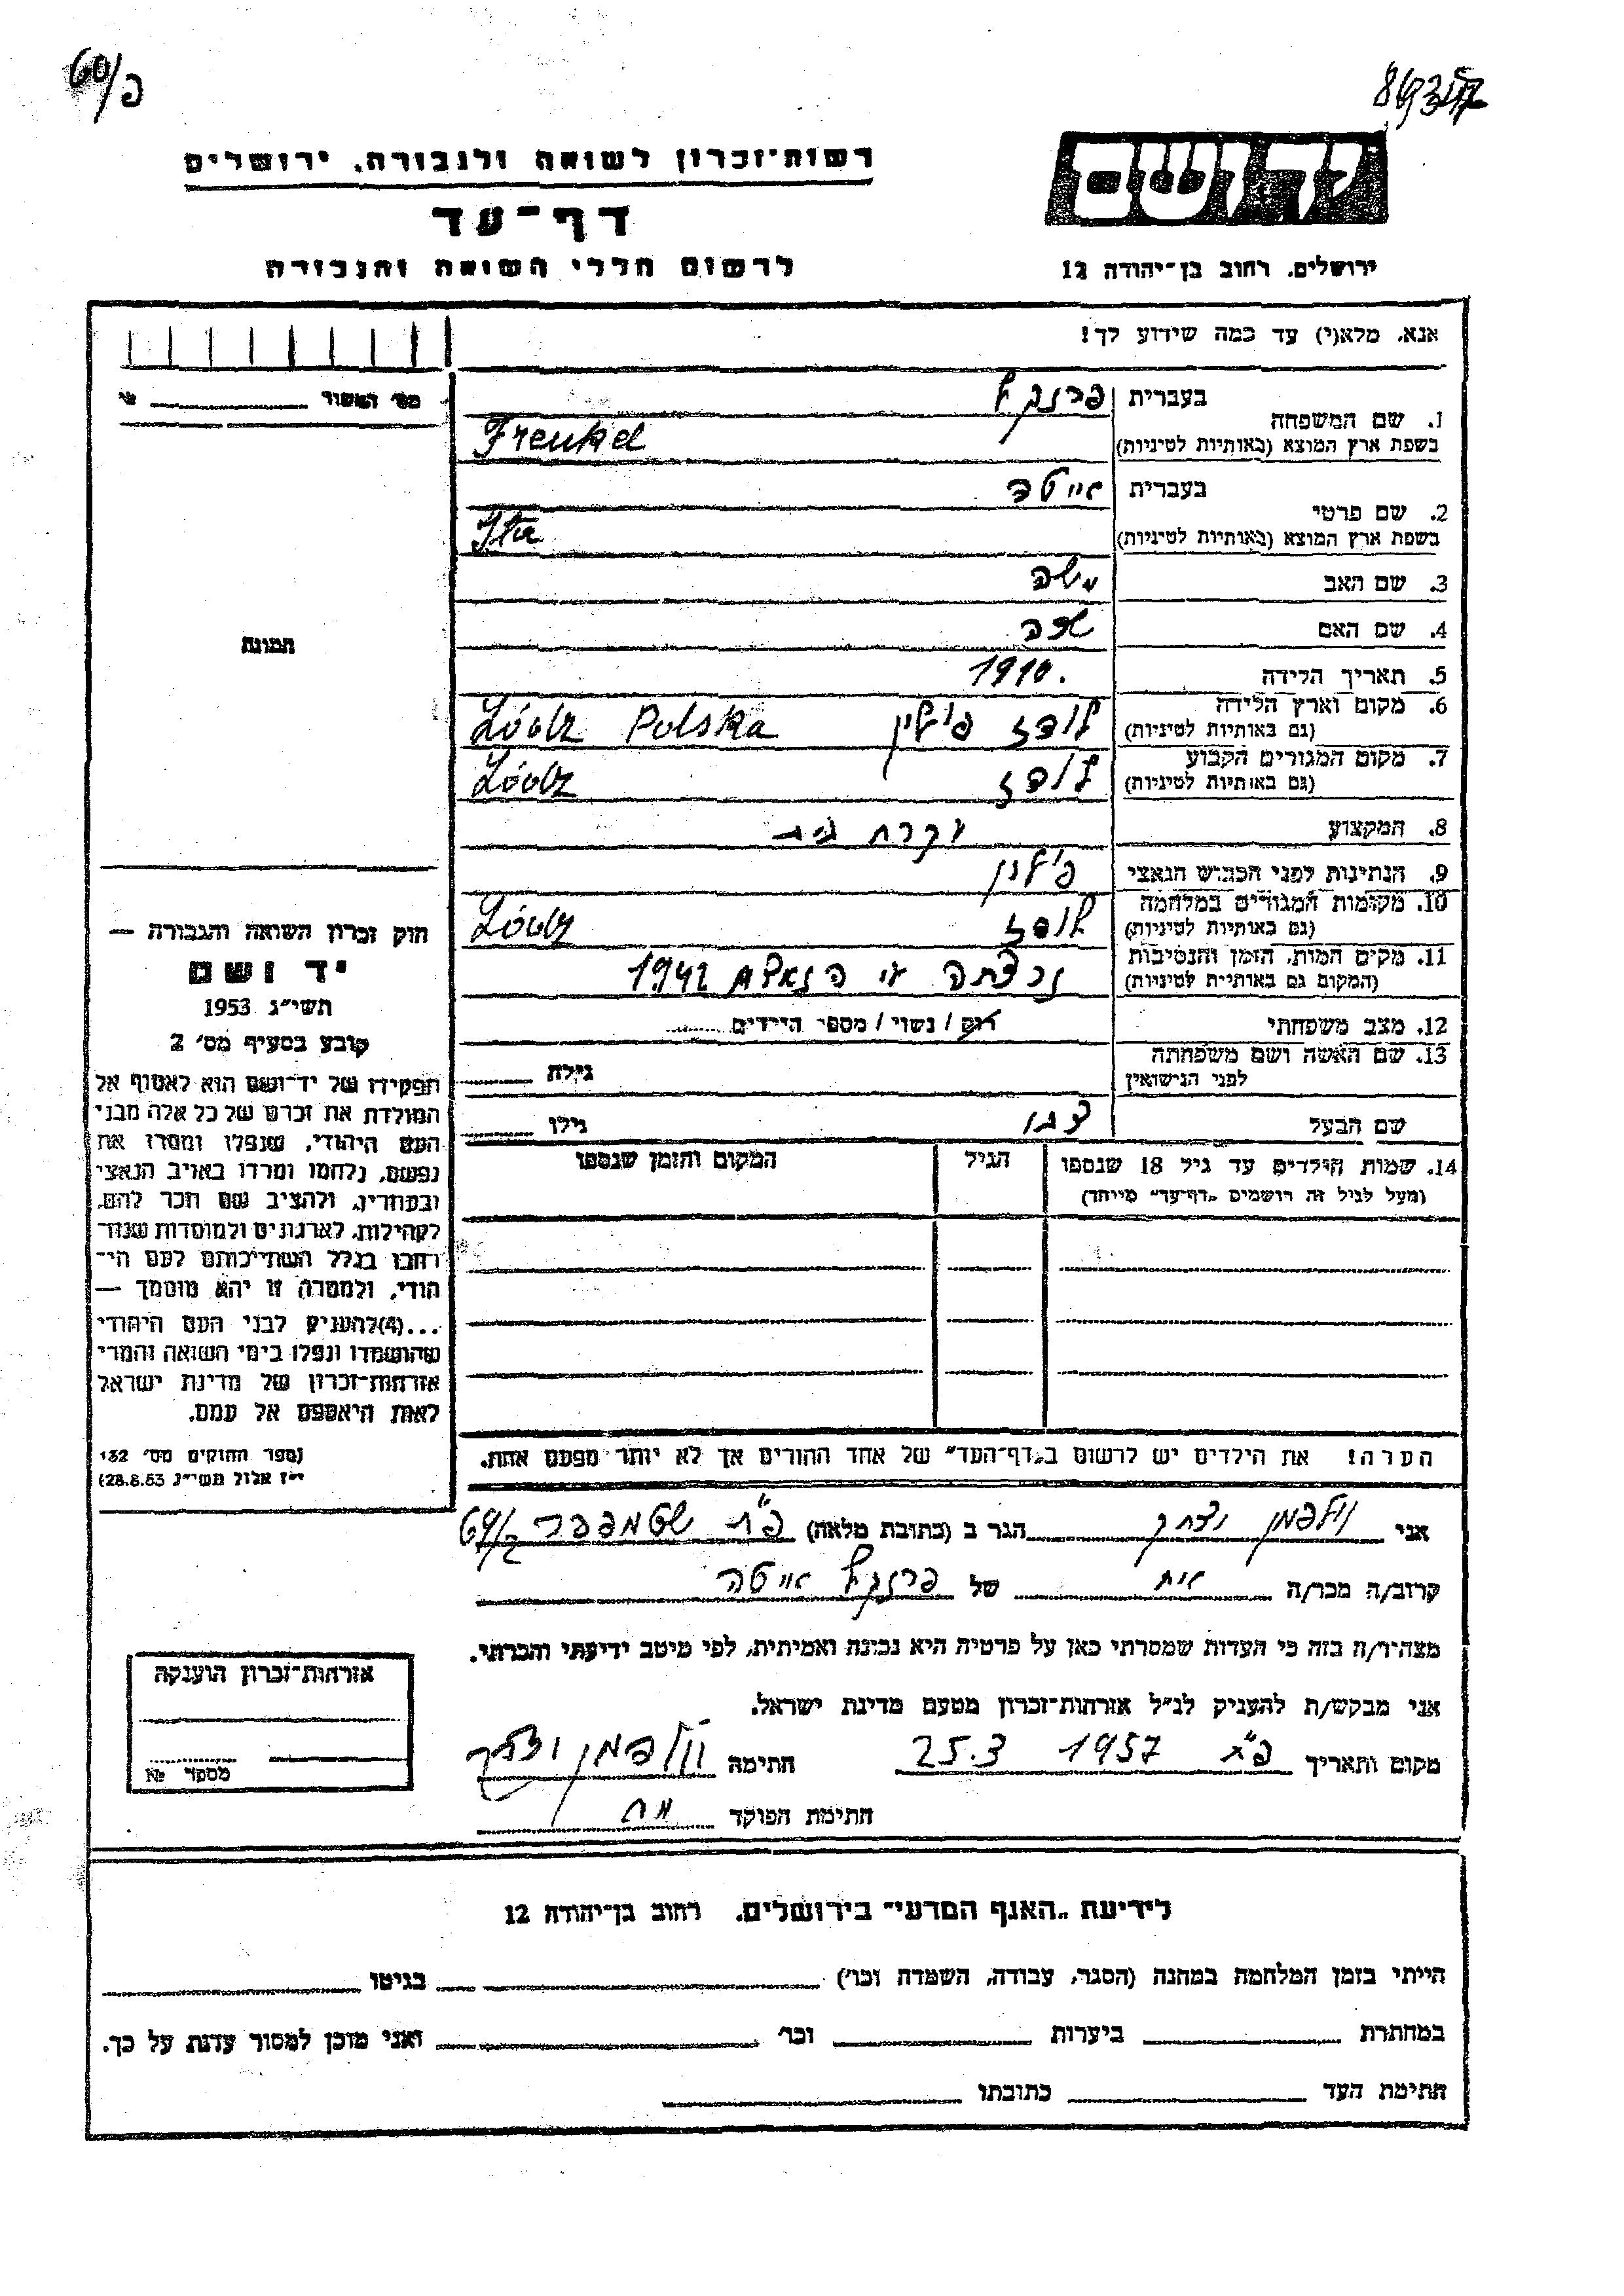 60/פ
רשות־זכרון לשואה ולגבורה, ירושלים
דף־עד
לרשום חללי השואה והגבורה
ירושלים, רחוב בן־יהודה 12
אנא, מלא(י) עד כמה שידוע לך!
מס׳ האשור
1. שם המשפחה
בעברית פרנקל
בשפת ארץ המוצא (באותיות לטיניות) Frenkel
2. שם פרטי
בעברית אייטה
בשפת ארץ המוצא (באותיות לטיניות) Ita
3. שם האב משה
4. שם האם
5. תאריך הלידה 1910.
6. מקום וארץ הלידה (גם באותיות לטיניות) לודז פולין Łódz Polska
7. מקום המגורים הקבוע (גם באותיות לטיניות) לודז Łódz
8. המקצוע עקרת בית
9. הנתינות לפני הכבוש הנאצי פולין
10. מקומות המגורים במלחמה (גם באותיות לטיניות) לודז Łódz
11. מקום המות, הזמן והנסיבות (המקום גם באותיות לטיניות) נרצחה ע׳י הנאצים 1942
12. מצב משפחתי רווק / נשוי / מספר הילדים
13. שם האשה ושם משפחתה לפני הנישואין גילה
שם הבעל גילו
14. שמות הילדים עד גיל 18 שנספו
(מעל לגיל זה רושמים „דף־עד” מייחד)
הגיל
המקום והזמן שנספו
הערה! את הילדים יש לרשום ב„דף־העד” של אחד ההורים אך לא יותר מפעם אחת.
תמונה
חוק זכרון השואה והגבורה —
יד ושם
תשי״ג 1953
קובע בסעיף מס׳ 2
תפקידו של יד־ושם הוא לאסוף אל
המולדת את זכרם של כל אלה מבני
העם היהודי, שנפלו ומסרו את
נפשם, נלחמו ומרדו באויב הנאצי
ובעוזריו, ולהציב שם וזכר להם,
לקהילות, לארגונים ולמוסדות שנח־
רבו בגלל השתייכותם לעם הי־
הודי, ולמטרה זו יהא מוסמך —
...(4)להעניק לבני העם היהודי
שהושמדו ונפלו בימי השואה והמרי
אזרחות־זכרון של מדינת ישראל
לאות היאספם אל עמם.
(ספר החוקים מס׳ 132
י״ז אלול תשי״ג 28.8.53)
אני וולפמן יצחק הגר ב (כתובת מלאה) פ״ת שטמפפר
קרוב/ה מכר/ה אח של פרנקל אייטה
מצהיר/ה בזה כי העדות שמסרתי כאן על פרטיה היא נכונה ואמיתית, לפי מיטב ידיעתי והכרתי.
אני מבקש/ת להעניק לנ״ל אזרחות־זכרון מטעם מדינת ישראל.
מקום ותאריך פ״ת 1957 25.3 חתימה וולפמן יצחק
חתימת הפוקד
אזרחות־זכרון הוענקה
מספר №
לידיעת „האגף המדעי” בירושלים, רחוב בן־יהודה 12
הייתי בזמן המלחמה במחנה (הסגר, עבודה, השמדה וכר׳) בגיטו
במחתרת ביערות וכר׳ ואני מוכן למסור עדות על כך.
חתימת העד כתובתו